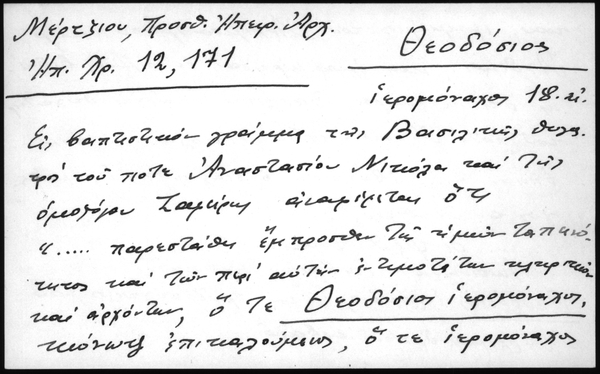 Μέρτζιου, Προσθ. Ἠπειρ. Ἀρχ.
Ἠπ. Χρ. 12, 171
Θεοδόσιος
ἱερομόναχος 18. αἰ.
Εἰς βαπτιστικὸν γράμμα τῆς Βασιλικῆς θυγα-
τρὸς τοῦ ποτε Ἀναστασίου Νικόλα καὶ τῆς
ὁμοζύγου ἀναφέρεται ὅτι
«..... παρεστάθη ἔμπροσθεν τῆς ἡμῶν ταπεινό-
τητος καὶ τῶν περὶ αὐτὴν ἐντιμοτάτων κληρικῶν
καὶ ἀρχόντων, ὅ τε Θεοδόσιος ἱερομόναχος,
ἐπικαλούμενος, ὅ τε ἱερομόναχος